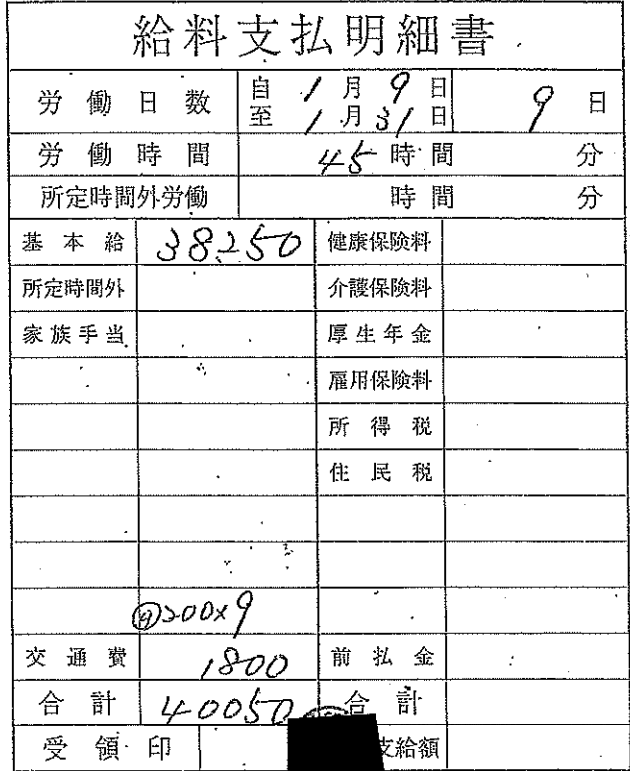 給料支払明細書
労働日数 自 1月9日 至 1月31日 9日
労働時間 45時間 分
所定時間外労働 時間 分
基本給 38250 健康保険料
所定時間外 介護保険料
家族手当 厚生年金
雇用保険料
所得税
住民税
@200x9
交通費 1800 前払金
合計 40050 合計
受領印 支給額